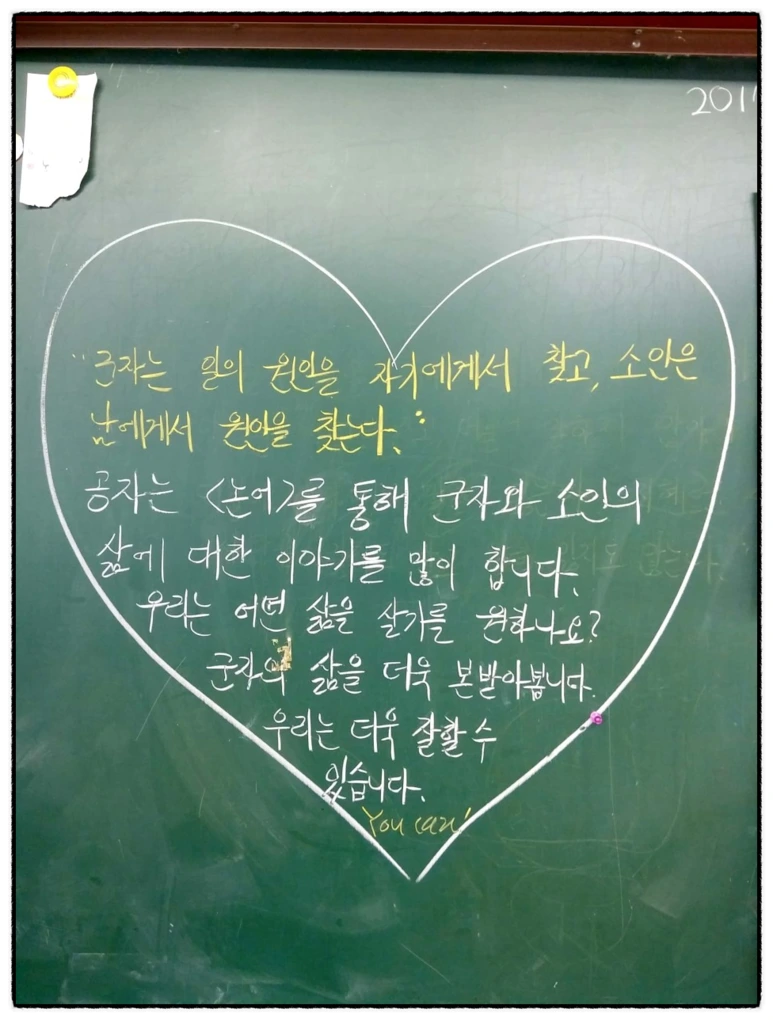 201
"군자는 일의 원인을 자기에게서 찾고, 소인은
남에게서 원인을 찾는다."
공자는 <논어>를 통해 군자와 소인의
삶에 대한 이야기를 많이 합니다.
우리는 어떤 삶을 살기를 원하나요?
군자의 삶을 더욱 본받아봅니다.
우리는 더욱 잘할 수
있습니다.
You can!